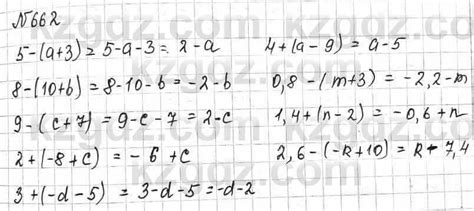 №662
5-(a+3)=5-a-3=2-a
8-(10+b)=8-10-b=-2-b
9-(c+7)=9-c-7=2-c
2+(-8+c)=-6+c
3+(-d-5)=3-d-5=-d-2
4+(a-9)=a-5
0,8-(m+3)=-2,2-m
1,4+(n-2)=-0,6+n
2,6-(-k+10)=k-7,4
kzgdz.com